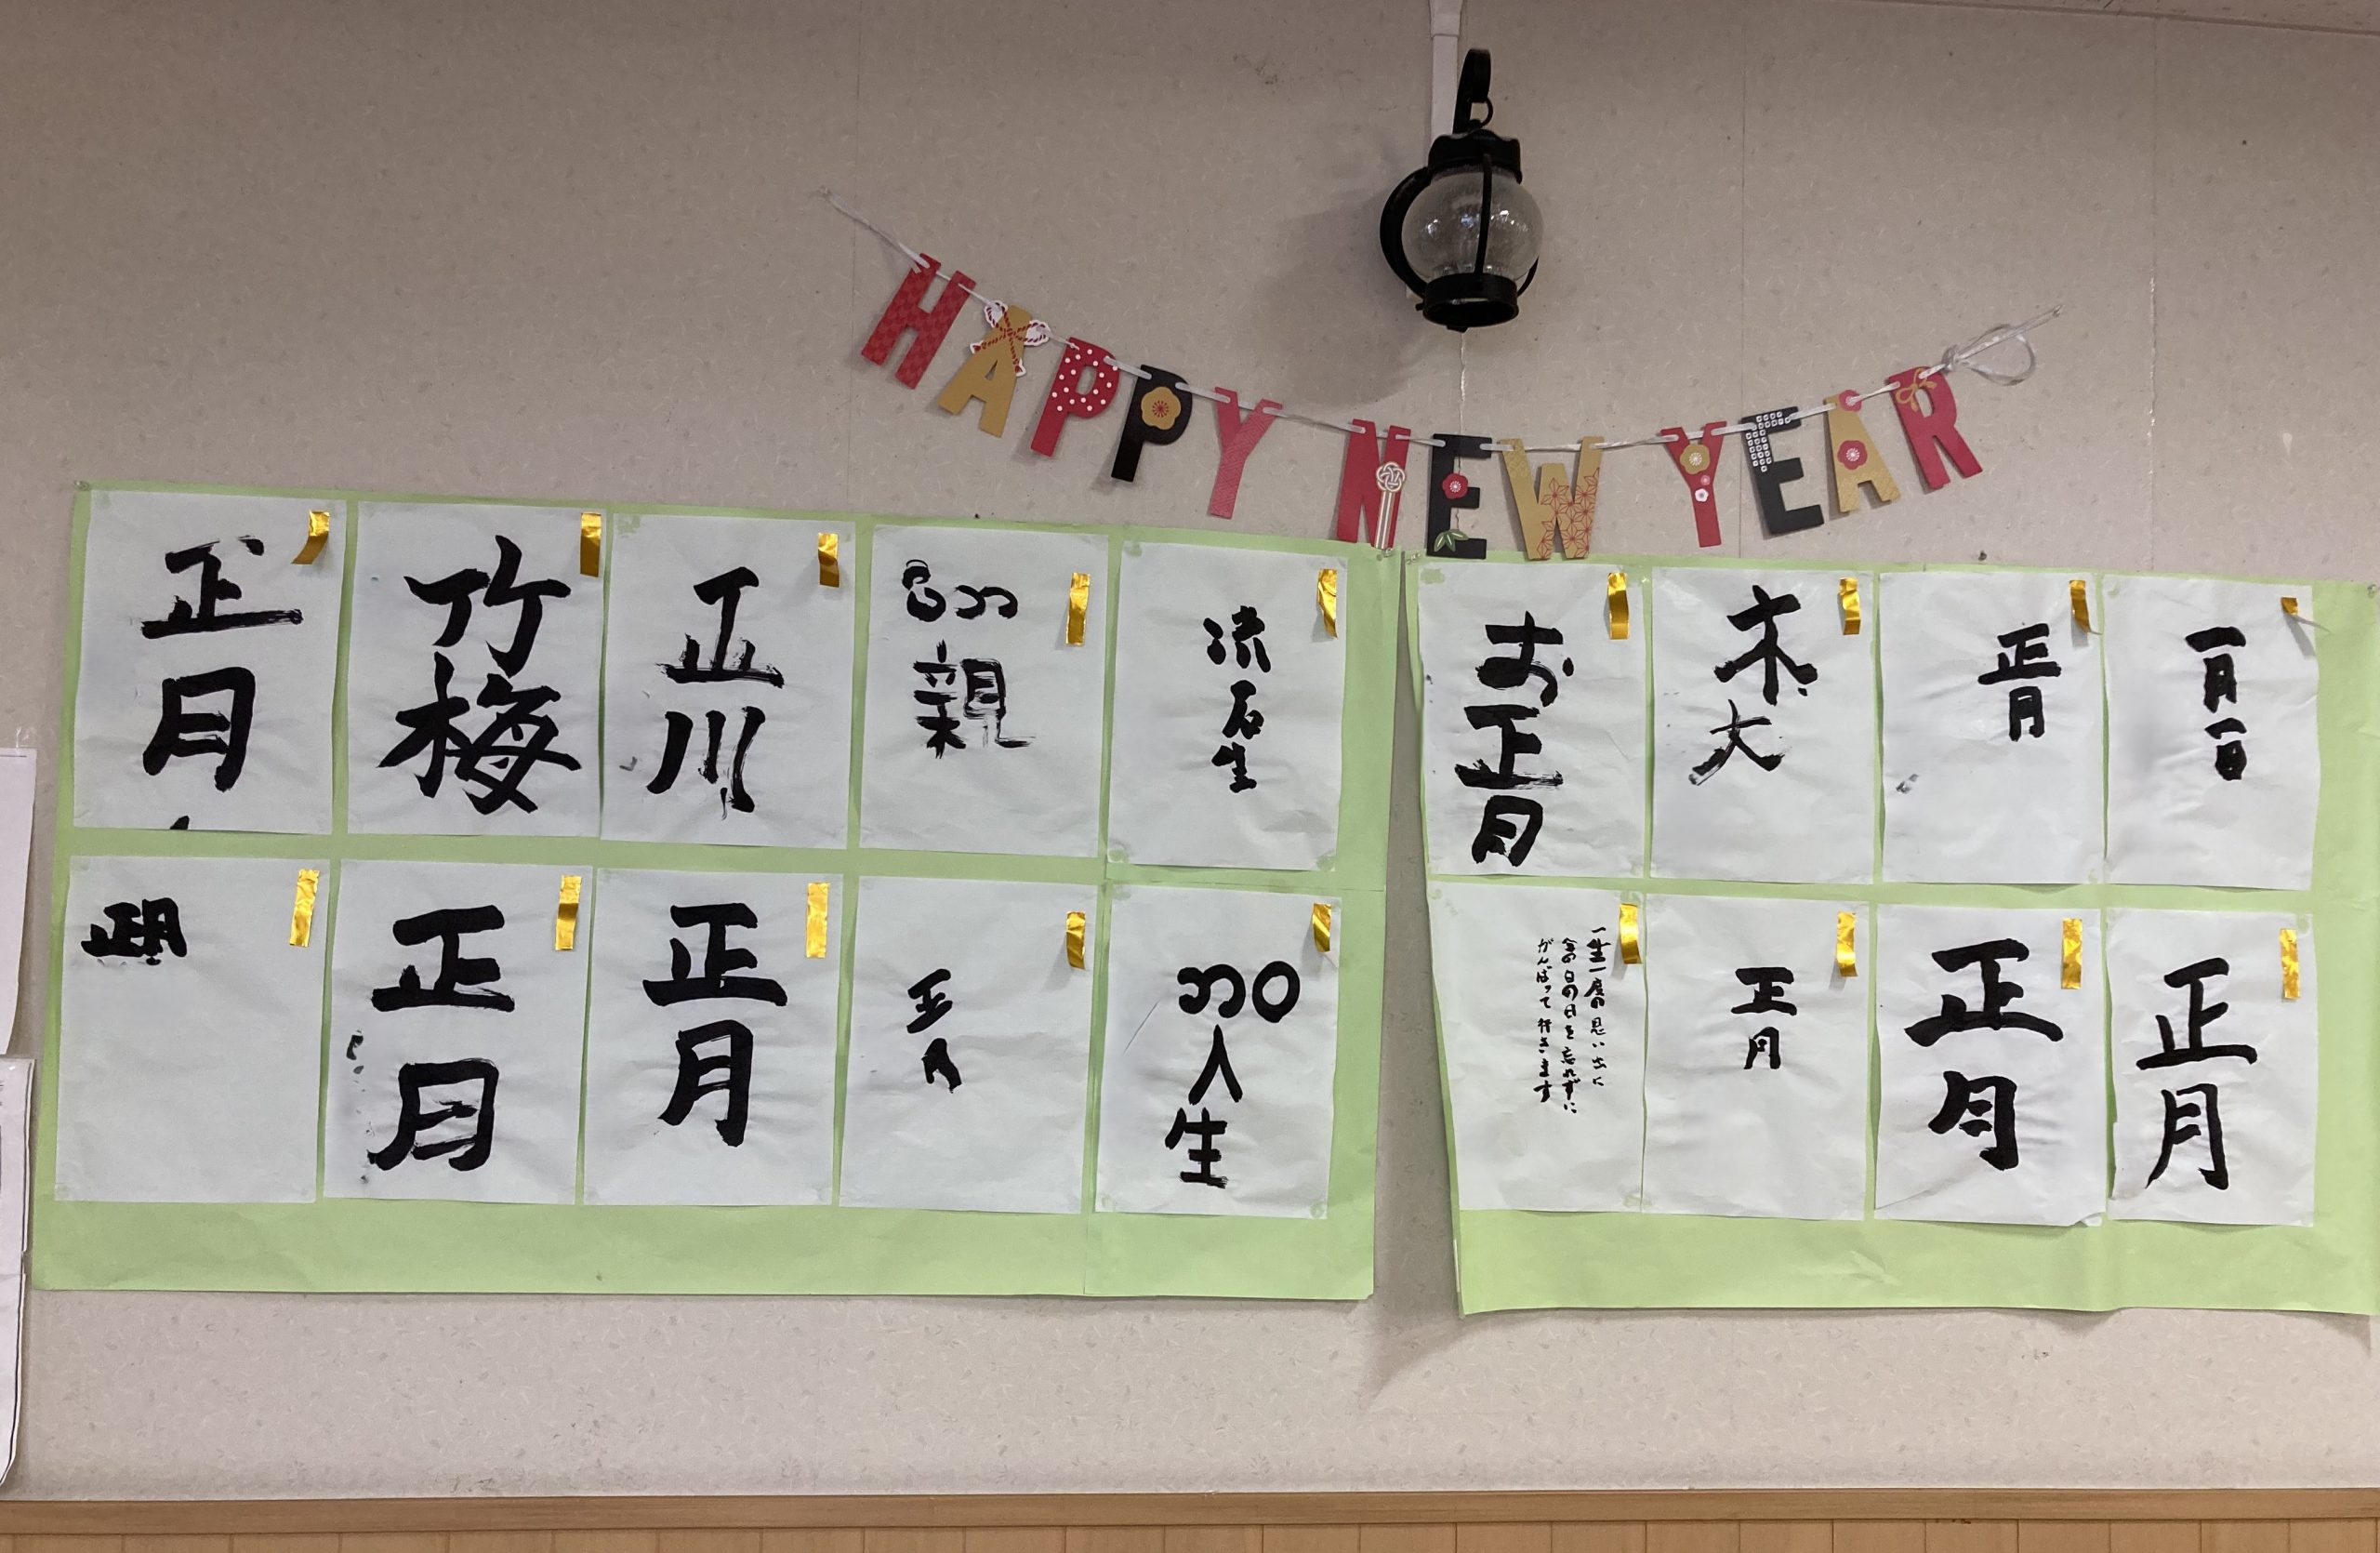 HAPPY NEW YEAR
正月
竹梅
正川
親
流石生
お正月
木大
正月
一月一日
正月
正日
正月
正月
人生
一生一度の思い出に
今の日の日を忘れずに
がんばって行きます
正月
正月
正月